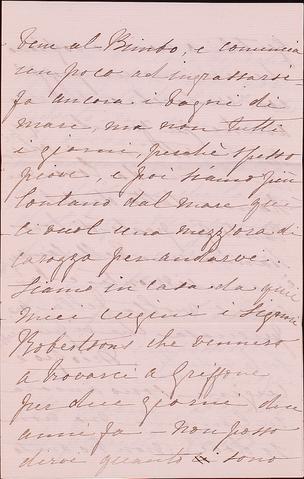 bene al Bimbo, e comincia
un poco ad ingrassarsi -
fa ancora i bagni di
mare, ma non tutti
i giorni, perchè spesso
piove, e poi siamo più
lontano dal mare qui
ci vuol una mezz'ora di
carozza per andarve.
Siamo in casa da quei
miei cugini i Signri
Robertsons che vennero
a trovarci a Griffone
per due giorni due
anni fa - non posso
dirvi quanto sono